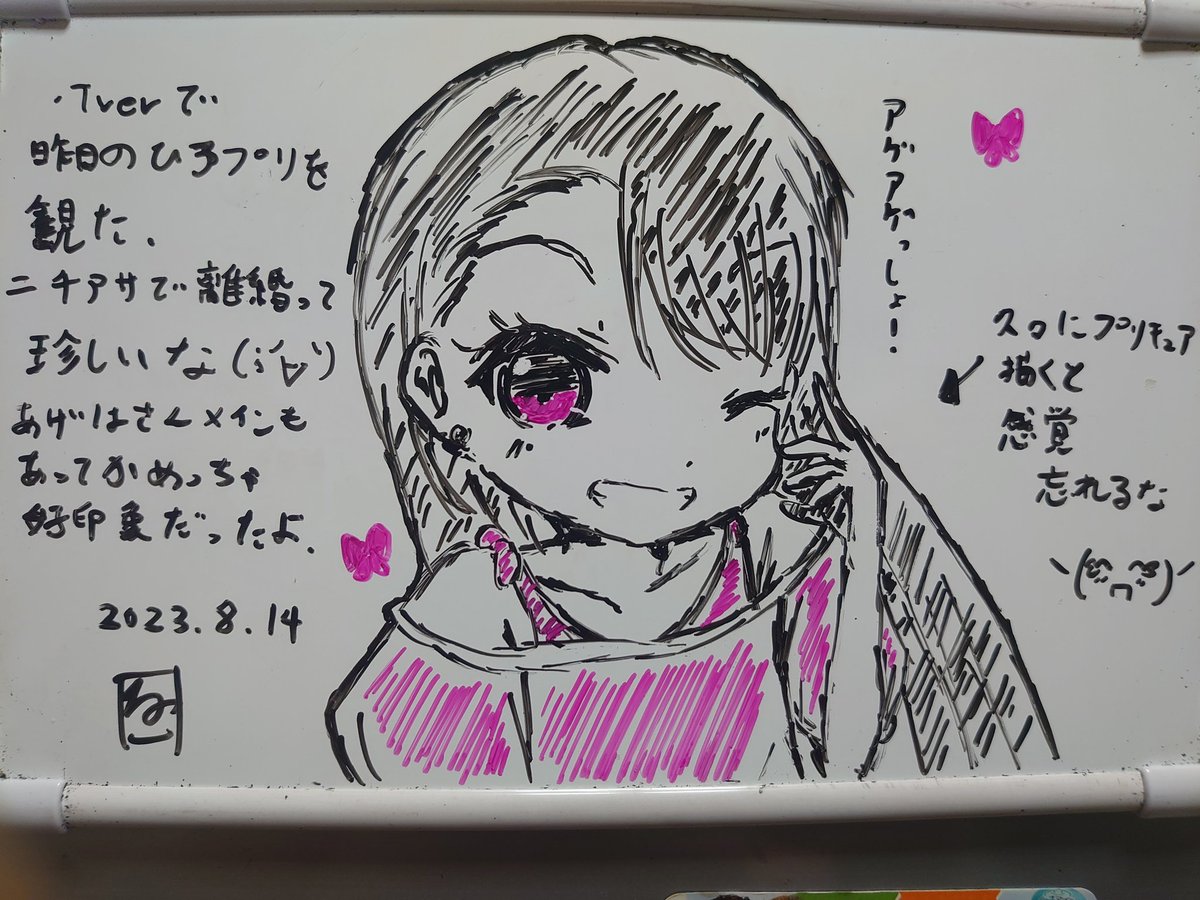 ・Tverで
昨日のひろプリを
観た、
ニチアサで離婚って
珍しいな
あげはさんメインも
あってかめっちゃ
好印象だったよ、
2023.8.14
アゲアゲっしょ!
久々にプリキュア
描くと
感覚
忘れるな